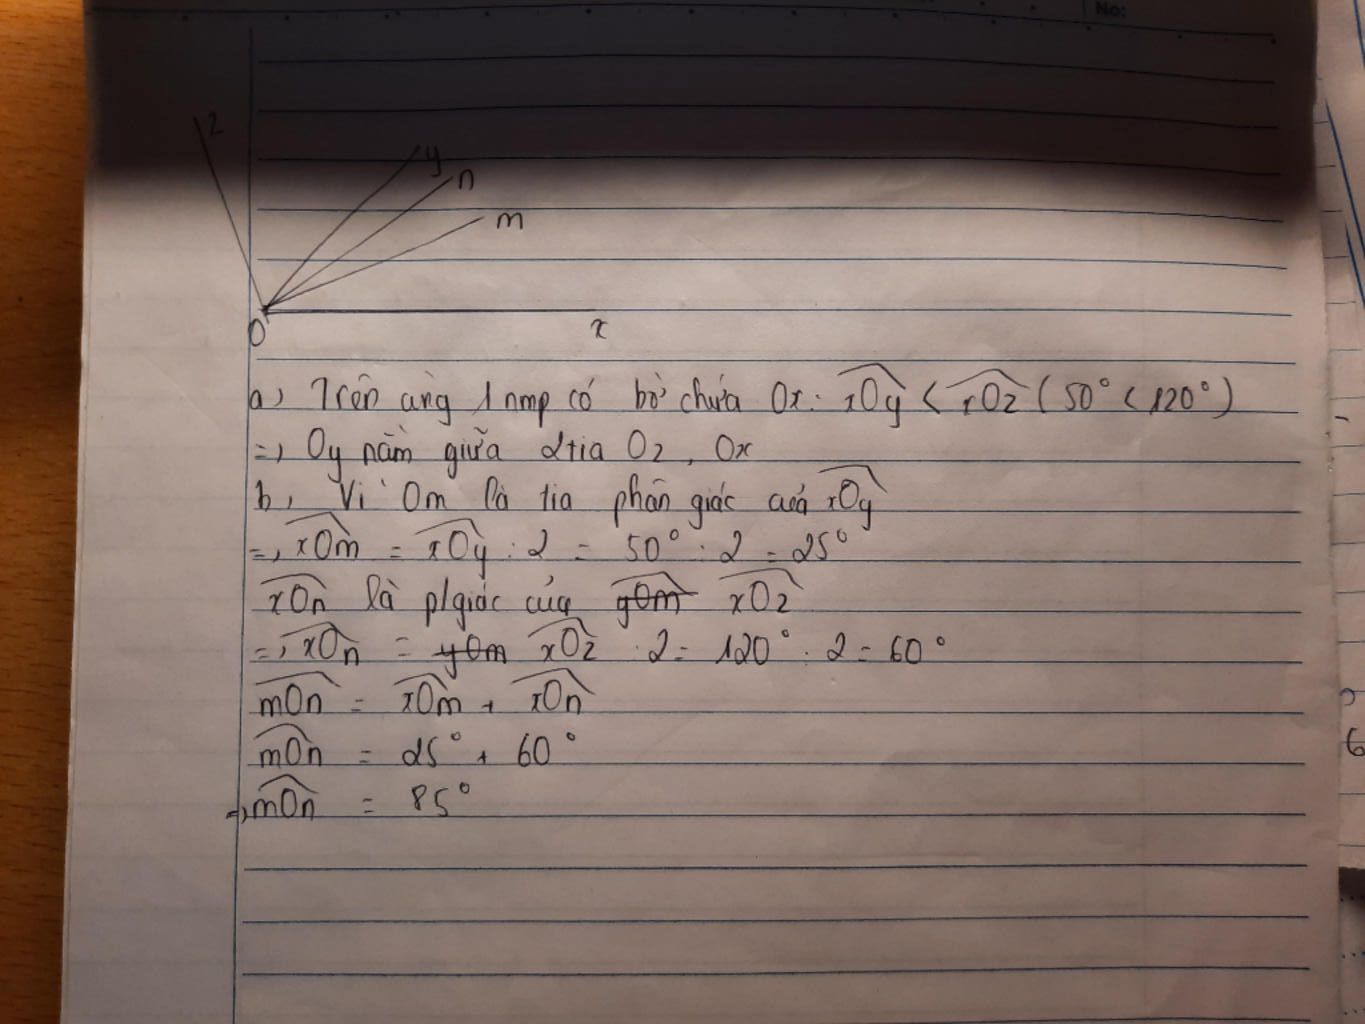 No:
z
y
n
m
O
x
a, Trên cùng 1 nmp có bờ chứa Ox: xOy < xOz ( 50° < 120° )
=, Oy nằm giữa 2 tia Oz, Ox
b, Vì Om là tia phân giác của xOy
=, xOm = xOy : 2 = 50° : 2 = 25°
xOn là p/giác của yOm xOz
=, xOn = yOm xOz : 2 = 120° : 2 = 60°
mOn = xOm + xOn
mOn = 25° + 60°
=, mOn = 85°
6